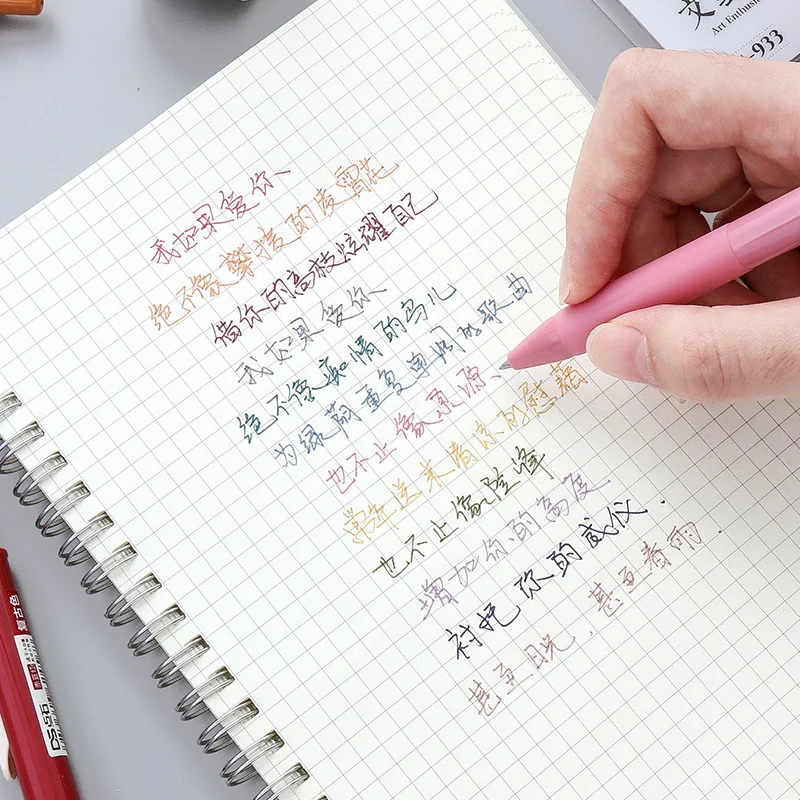 我如果爱你
绝不像攀援的凌霄花
借你的高枝炫耀自己
我如果爱你
绝不像痴情的鸟儿
为绿荫重复单调的歌曲
也不止像泉源、
常年送来清凉的慰藉
也不止像险峰
增加你的高度
衬托你的威仪.
甚至日光,甚至春雨.
Art Enthusi
-933
复古色
DS-S6